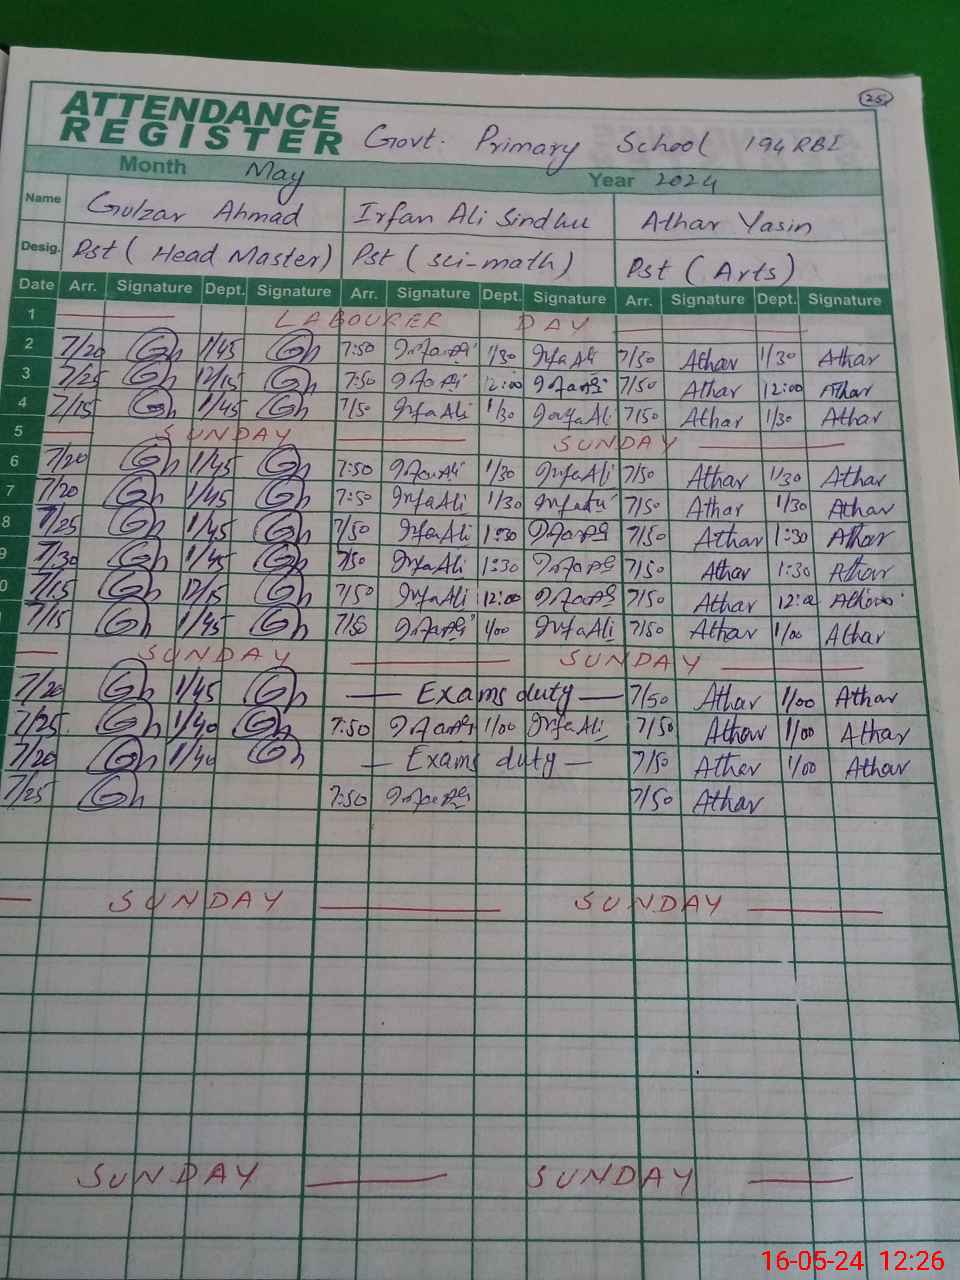 25
ATTENDANCE
REGISTER Govt. Primary School 194 RBI
Month May Year 2024
Name Gulzar Ahmad Irfan Ali Sindhu Athar Yasin
Desig. Pst (Head Master) Pst (sci-math) Pst (Arts)
Date Arr. Signature Dept. Signature Arr. Signature Dept. Signature Arr. Signature Dept. Signature
1 LABOURER DAY
2 7/20 Gh 1/45 Gh 7:50 IrfanAli 1/30 IrfaAli 7/50 Athar 1/30 Athar
3 7/25 Gh 12/15 Gh 7:50 12:00 7/50 Athar 12:00 Athar
4 7/15 Gh 1/45 Gh 7/50 IrfaAli 1/30 IrfaAli 7/50 Athar 1/30 Athar
5 SUNDAY SUNDAY
6 7/20 Gh 1/45 Gh 7:50 IrfanAli 1/30 IrfaAli 7/50 Athar 1/30 Athar
7 7/20 Gh 1/45 Gh 7:50 IrfaAli 1/30 7/50 Athar 1/30 Athar
8 7/25 Gh 1/45 Gh 7/50 IrfaAli 1:30 7/50 Athar 1:30 Athar
9 7/30 Gh 1/45 Gh 7/50 IrfaAli 1:30 7/50 Athar 1:30 Athar
0 7/15 Gh 12/15 Gh 7/50 IrfaAli 12:00 7/50 Athar 12:0 Athar
7/15 Gh 1/45 Gh 7/50 1/00 IrfaAli 7/50 Athar 1/00 Athar
SUNDAY SUNDAY
7/20 Gh 1/45 Gh Exams duty 7/50 Athar 1/00 Athar
7/25 Gh 1/40 Gh 7:50 1/00 IrfaAli 7/50 Athar 1/00 Athar
7/20 Gh 1/40 Gh Exams duty 7/50 Athar 1/00 Athar
7/25 Gh 7:50 7/50 Athar
SUNDAY SUNDAY
SUNDAY SUNDAY
16-05-24 12:26